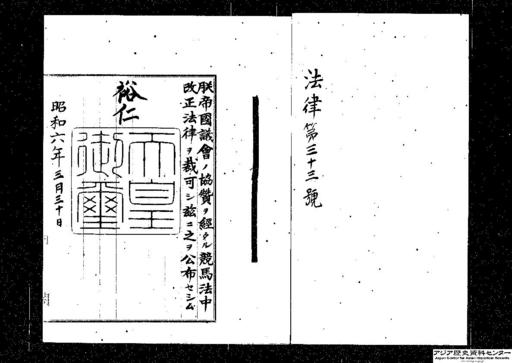 法律第三十三號
朕帝國議會ノ協贊ヲ經タル競馬法中
改正法律ヲ裁可シ茲ニ之ヲ公布セシム
裕仁
天皇御璽
昭和六年三月三十日
アジア歴史資料センター
Japan Center for Asian Historical Records